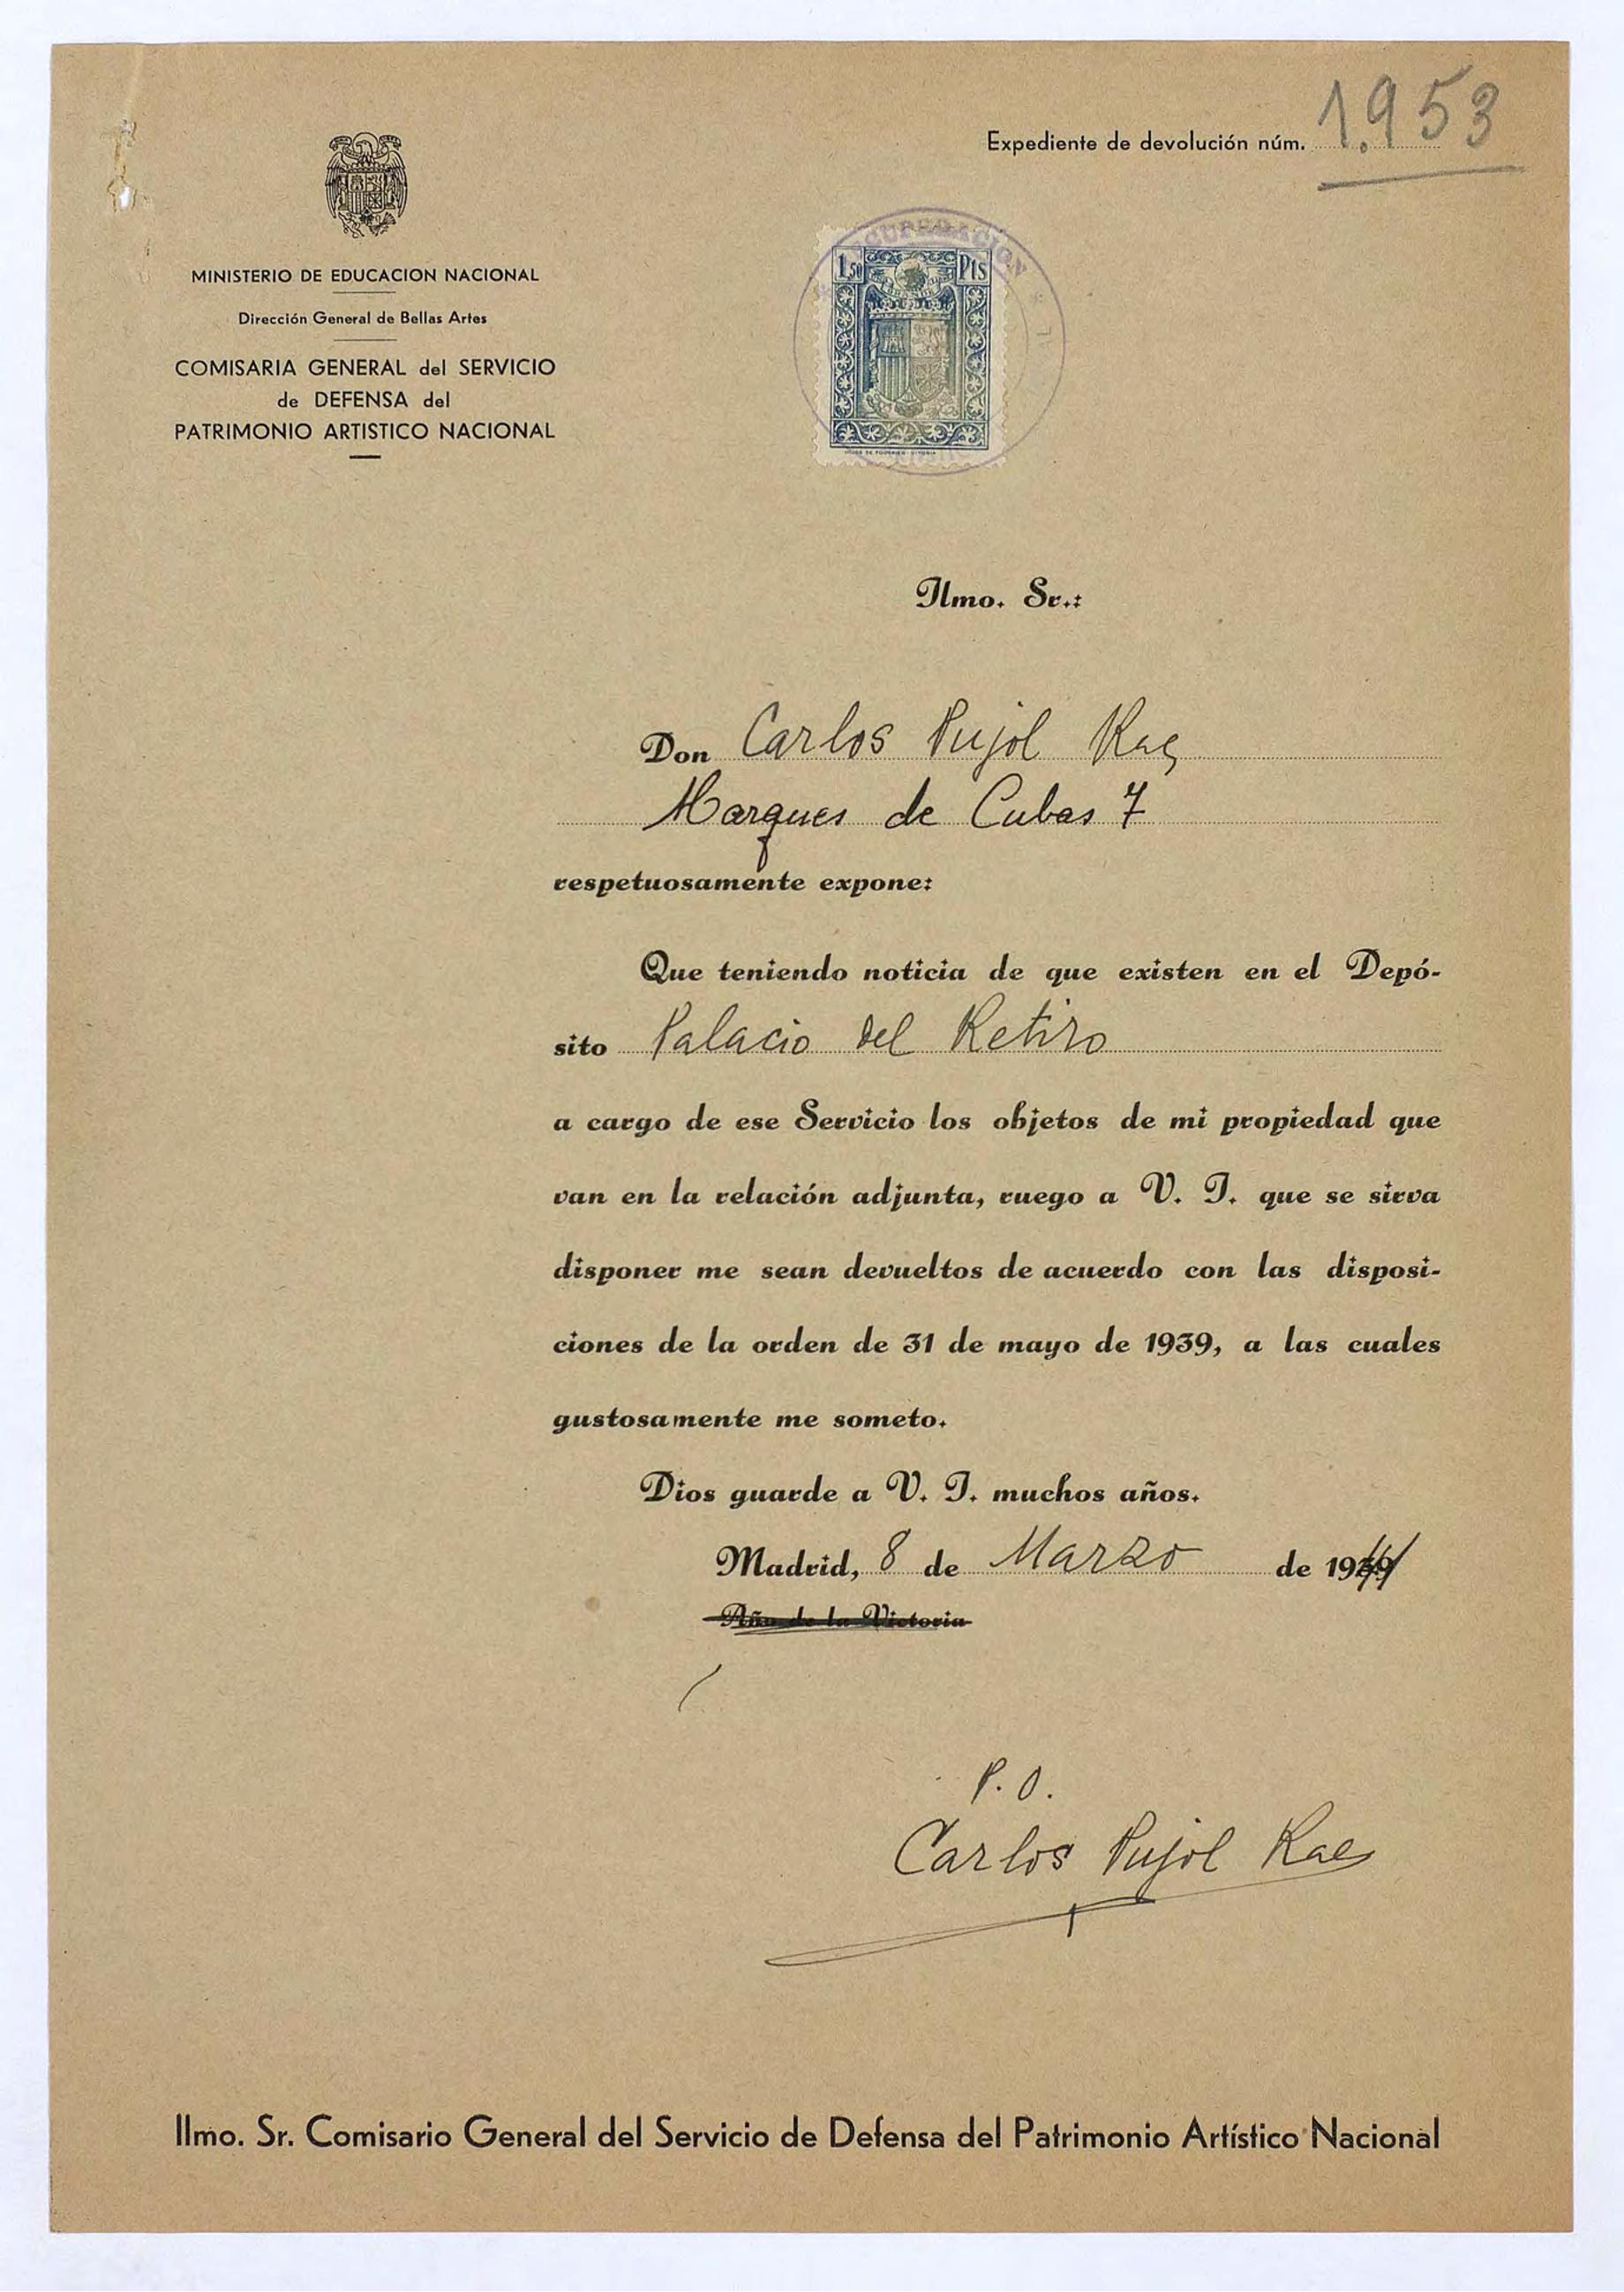 Expediente de devolución núm. 1.953
MINISTERIO DE EDUCACION NACIONAL
Dirección General de Bellas Artes
COMISARIA GENERAL del SERVICIO
de DEFENSA del
PATRIMONIO ARTISTICO NACIONAL
CUPERACION
1,50 Pts
Ilmo. Sr.:
Don Carlos Pujol Rae
Marques de Cubas 7
respetuosamente expone:
Que teniendo noticia de que existen en el Depó-
sito Palacio del Retiro
a cargo de ese Servicio los objetos de mi propiedad que
van en la relación adjunta, ruego a V. I. que se sirva
disponer me sean devueltos de acuerdo con las disposi-
ciones de la orden de 31 de mayo de 1939, a las cuales
gustosamente me someto.
Dios guarde a V. I. muchos años.
Madrid, 8 de Marzo de 1941
Año de la Victoria
P. O.
Carlos Pujol Rae
Ilmo. Sr. Comisario General del Servicio de Defensa del Patrimonio Artístico Nacional